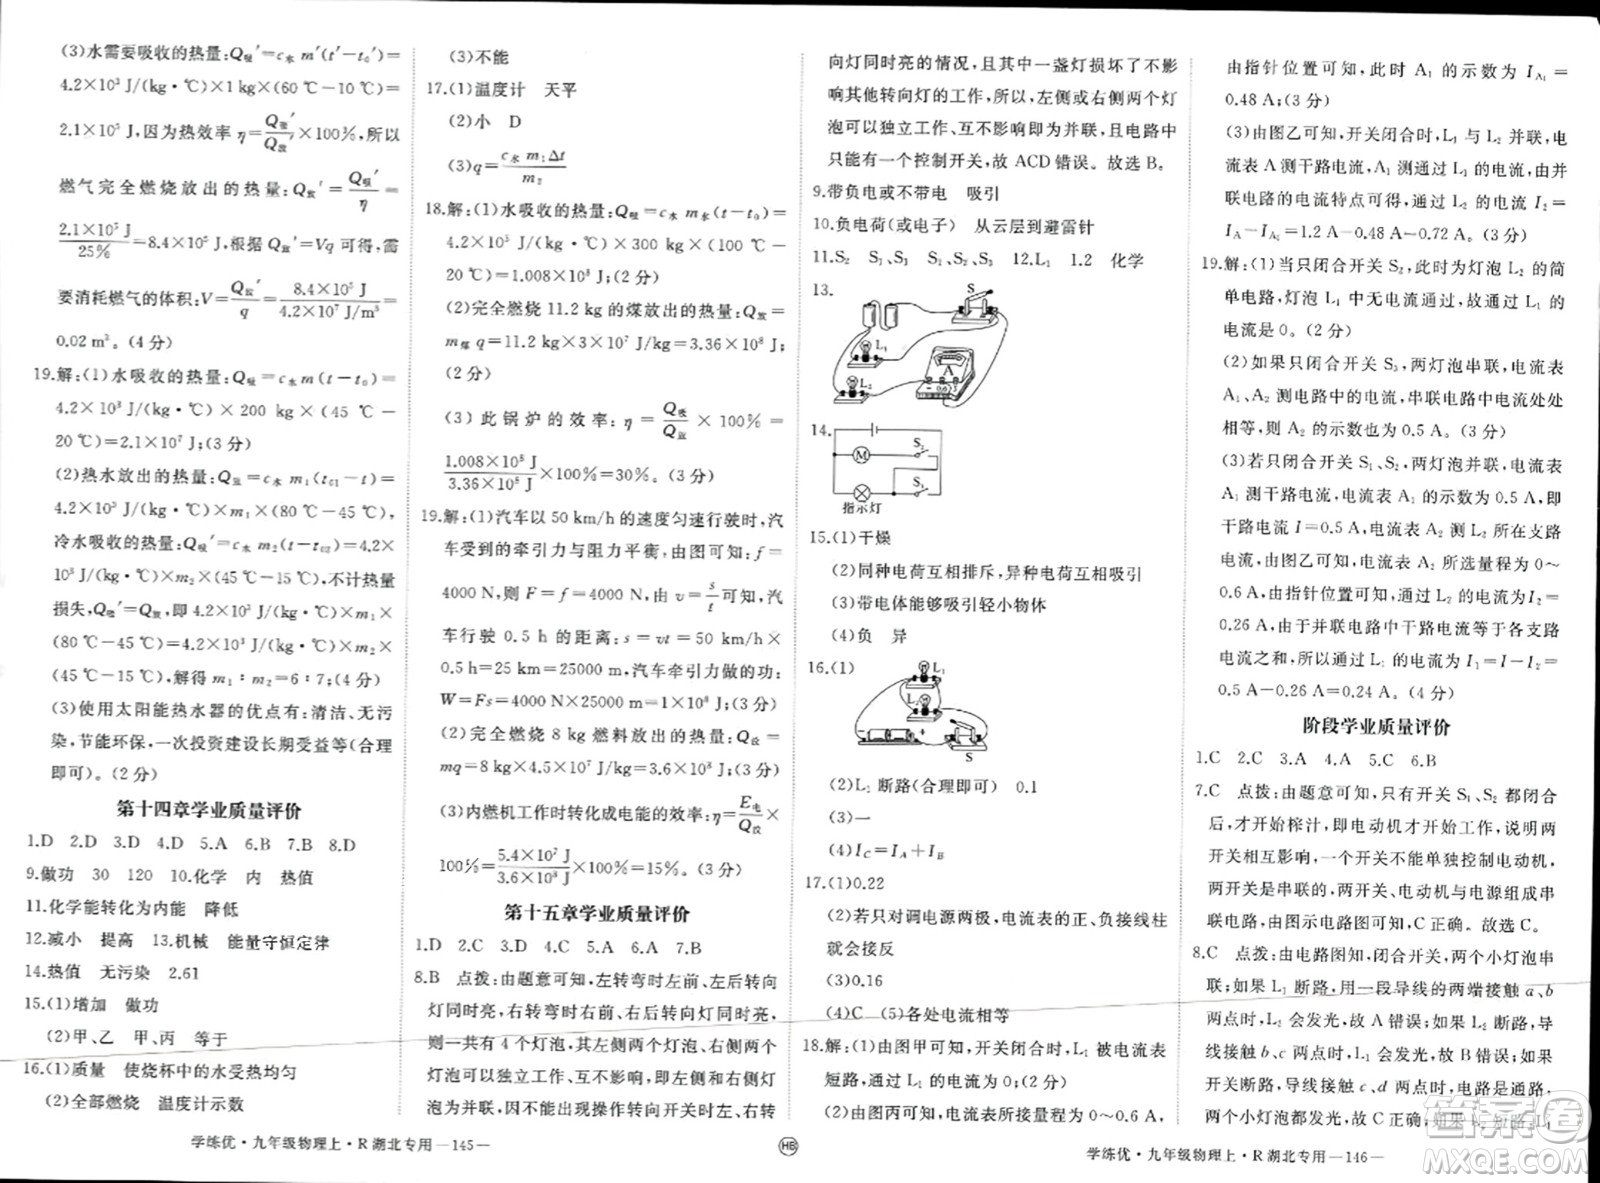 (3)水需要吸收的热量:Q吸′=c水 m′(t′−t₀′)=
4.2×10³ J/(kg·℃)×1 kg×(60 ℃−10 ℃)=
2.1×10⁵ J,因为热效率 η=Q吸′/Q放′×100%,所以
燃气完全燃烧放出的热量:Q放′=Q吸′/η=
2.1×10⁵ J/25%=8.4×10⁵ J,根据 Q放′=Vq 可得,需
要消耗燃气的体积:V=Q放′/q=8.4×10⁵ J/4.2×10⁷ J/m³=
0.02 m³。(4 分)
19.解:(1)水吸收的热量:Q吸=c水 m(t−t₀)=
4.2×10³ J/(kg·℃)×200 kg×(45 ℃−
20 ℃)=2.1×10⁷ J;(3 分)
(2)热水放出的热量:Q放=c水 m₁(t₀₁−t)=
4.2×10³ J/(kg·℃)×m₁×(80 ℃−45 ℃),
冷水吸收的热量:Q吸′=c水 m₂(t−t₀₂)=4.2×
10³ J/(kg·℃)×m₂×(45 ℃−15 ℃),不计热量
损失,Q吸′=Q放,即 4.2×10³ J/(kg·℃)×m₁×
(80 ℃−45 ℃)=4.2×10³ J/(kg·℃)×m₂×
(45 ℃−15 ℃),解得 m₁∶m₂=6∶7;(4 分)
(3)使用太阳能热水器的优点有:清洁、无污
染,节能环保,一次投资建设长期受益等(合理
即可)。(2 分)
第十四章学业质量评价
1.D 2.D 3.D 4.D 5.A 6.B 7.B 8.D
9.做功 30 120 10.化学 内 热值
11.化学能转化为内能 降低
12.减小 提高 13.机械 能量守恒定律
14.热值 无污染 2.61
15.(1)增加 做功
(2)甲、乙 甲、丙 等于
16.(1)质量 使烧杯中的水受热均匀
(2)全部燃烧 温度计示数
(3)不能
17.(1)温度计 天平
(2)小 D
(3)q=c水 m₁Δt/m₂
18.解:(1)水吸收的热量:Q吸=c水 m水(t−t₀)=
4.2×10³ J/(kg·℃)×300 kg×(100 ℃−
20 ℃)=1.008×10⁸ J;(2 分)
(2)完全燃烧 11.2 kg的煤放出的热量:Q放=
m煤 q=11.2 kg×3×10⁷ J/kg=3.36×10⁸ J;
(2 分)
(3)此锅炉的效率:η=Q吸/Q放×100%=
1.008×10⁸ J/3.36×10⁸ J×100%=30%。(3 分)
19.解:(1)汽车以 50 km/h 的速度匀速行驶时,汽
车受到的牵引力与阻力平衡,由图可知:f=
4000 N,则 F=f=4000 N,由 v=s/t可知,汽
车行驶 0.5 h 的距离:s=vt=50 km/h×
0.5 h=25 km=25000 m,汽车牵引力做的功:
W=Fs=4000 N×25000 m=1×10⁸ J;(3 分)
(2)完全燃烧 8 kg 燃料放出的热量:Q放=
mq=8 kg×4.5×10⁷ J/kg=3.6×10⁸ J;(3 分)
(3)内燃机工作时转化成电能的效率:η=E电/Q放×
100%=5.4×10⁷ J/3.6×10⁸ J×100%=15%。(3 分)
第十五章学业质量评价
1.D 2.C 3.D 4.C 5.A 6.A 7.B
8.B 点拨:由题意可知,左转弯时左前、左后转向
灯同时亮,右转弯时右前、右后转向灯同时亮,
则一共有 4 个灯泡,右侧两个灯泡、左侧两个灯
泡可以独立工作、互不影响,则左侧灯和右侧灯
泡为并联,因不能出现操作转向开关时左、右转
向灯同时亮的情况,且其中一盏灯损坏了不影
响其他转向灯的工作,所以,左侧或右侧两个灯
泡可以独立工作、互不影响即为并联,且电路中
只能有一个控制开关,故 ACD 错误。故选 B。
9.带负电或不带电 吸引
10.负电荷(或电子) 从云层到避雷针
11.S₂ S₁、S₃ S₂、S₃ 12.L₁ 1.2 化学
13.
S
L₁
A
− 0.6 3
L₂
14.
M
S₂
S₁
指示灯
15.(1)干燥
(2)同种电荷互相排斥,异种电荷互相吸引
(3)带电体能够吸引轻小物体
(4)负 异
16.(1)
L₁
L₂
S
(2)L₁ 断路(合理即可) 0.1
(3)一
(4)I_C=I_A+I_B
17.(1)0.22
(2)若只对调电源两极,电流表的正、负接线柱
就会接反
(3)0.16
(4)C (5)各处电流相等
18.解:(1)由图甲可知,开关闭合时,L₁ 被电流表
短路,通过 L₁ 的电流为 0;(2 分)
(2)由图丙可知,电流表所接量程为 0∼0.6 A,
由指针位置可知,此时 A₁ 的示数为 I_A₁=
0.48 A;(3 分)
(3)由图乙可知,开关闭合时,L₁ 与 L₂ 并联,电
流表 A 测干路电流,A₁ 测通过 L₁ 的电流,由并
联电路的电流特点可得,通过 L₂ 的电流 I₂=
I_A−I_A₁=1.2 A−0.48 A=0.72 A。(4 分)
19.解:(1)当只闭合开关 S₂,此时为灯泡 L₂ 的简
单电路,灯泡 L₁ 中无电流通过,故通过 L₁ 的
电流是 0。(2 分)
(2)如果只闭合开关 S₃,两灯泡串联,电流表
A₁、A₂ 测电路中的电流,串联电路中电流处处
相等,则 A₂ 的示数也为 0.5 A。(3 分)
(3)若只闭合开关 S₁、S₂,两灯泡并联,电流表
A₁ 测干路电流,电流表 A₁ 的示数为 0.5 A,即
干路电流 I=0.5 A,电流表 A₂ 测 L₂ 所在支路
电流,由图乙可知,电流表 A₂ 所选量程为 0∼
0.6 A,由指针位置可知,通过 L₂ 的电流为I₂=
0.26 A,由于并联电路中干路电流等于各支路
电流之和,所以通过 L₁ 的电流为 I₁=I−I₂=
0.5 A−0.26 A=0.24 A。(4 分)
阶段学业质量评价
1.C 2.C 3.A 4.A 5.C 6.B
7.C 点拨:由题意可知,只有开关 S₁、S₂ 都闭合
后,才开始榨汁,即电动机才开始工作,说明两
开关相互影响,一个开关不能单独控制电动机,
两开关是串联的,两开关、电动机与电源组成串
联电路,由图示电路图可知,C 正确。故选 C。
8.C 点拨:由电路图知,闭合开关,两个小灯泡串
联;如果 L₁ 断路,用一段导线的两端接触 a、b
两点,L₂ 会发光,故 A 错误;如果 L₂ 断路,导
线接触 b、c 两点,L₁ 会发光,故 B 错误;如果
开关断路,导线接触 c、d 两点时,电路是通路,
两个小灯泡都发光,故 C 正确;如果 L₂ 短路,L₁
学练优·九年级物理上·R 湖北专用—145—
HB
学练优·九年级物理上·R 湖北专用—146—